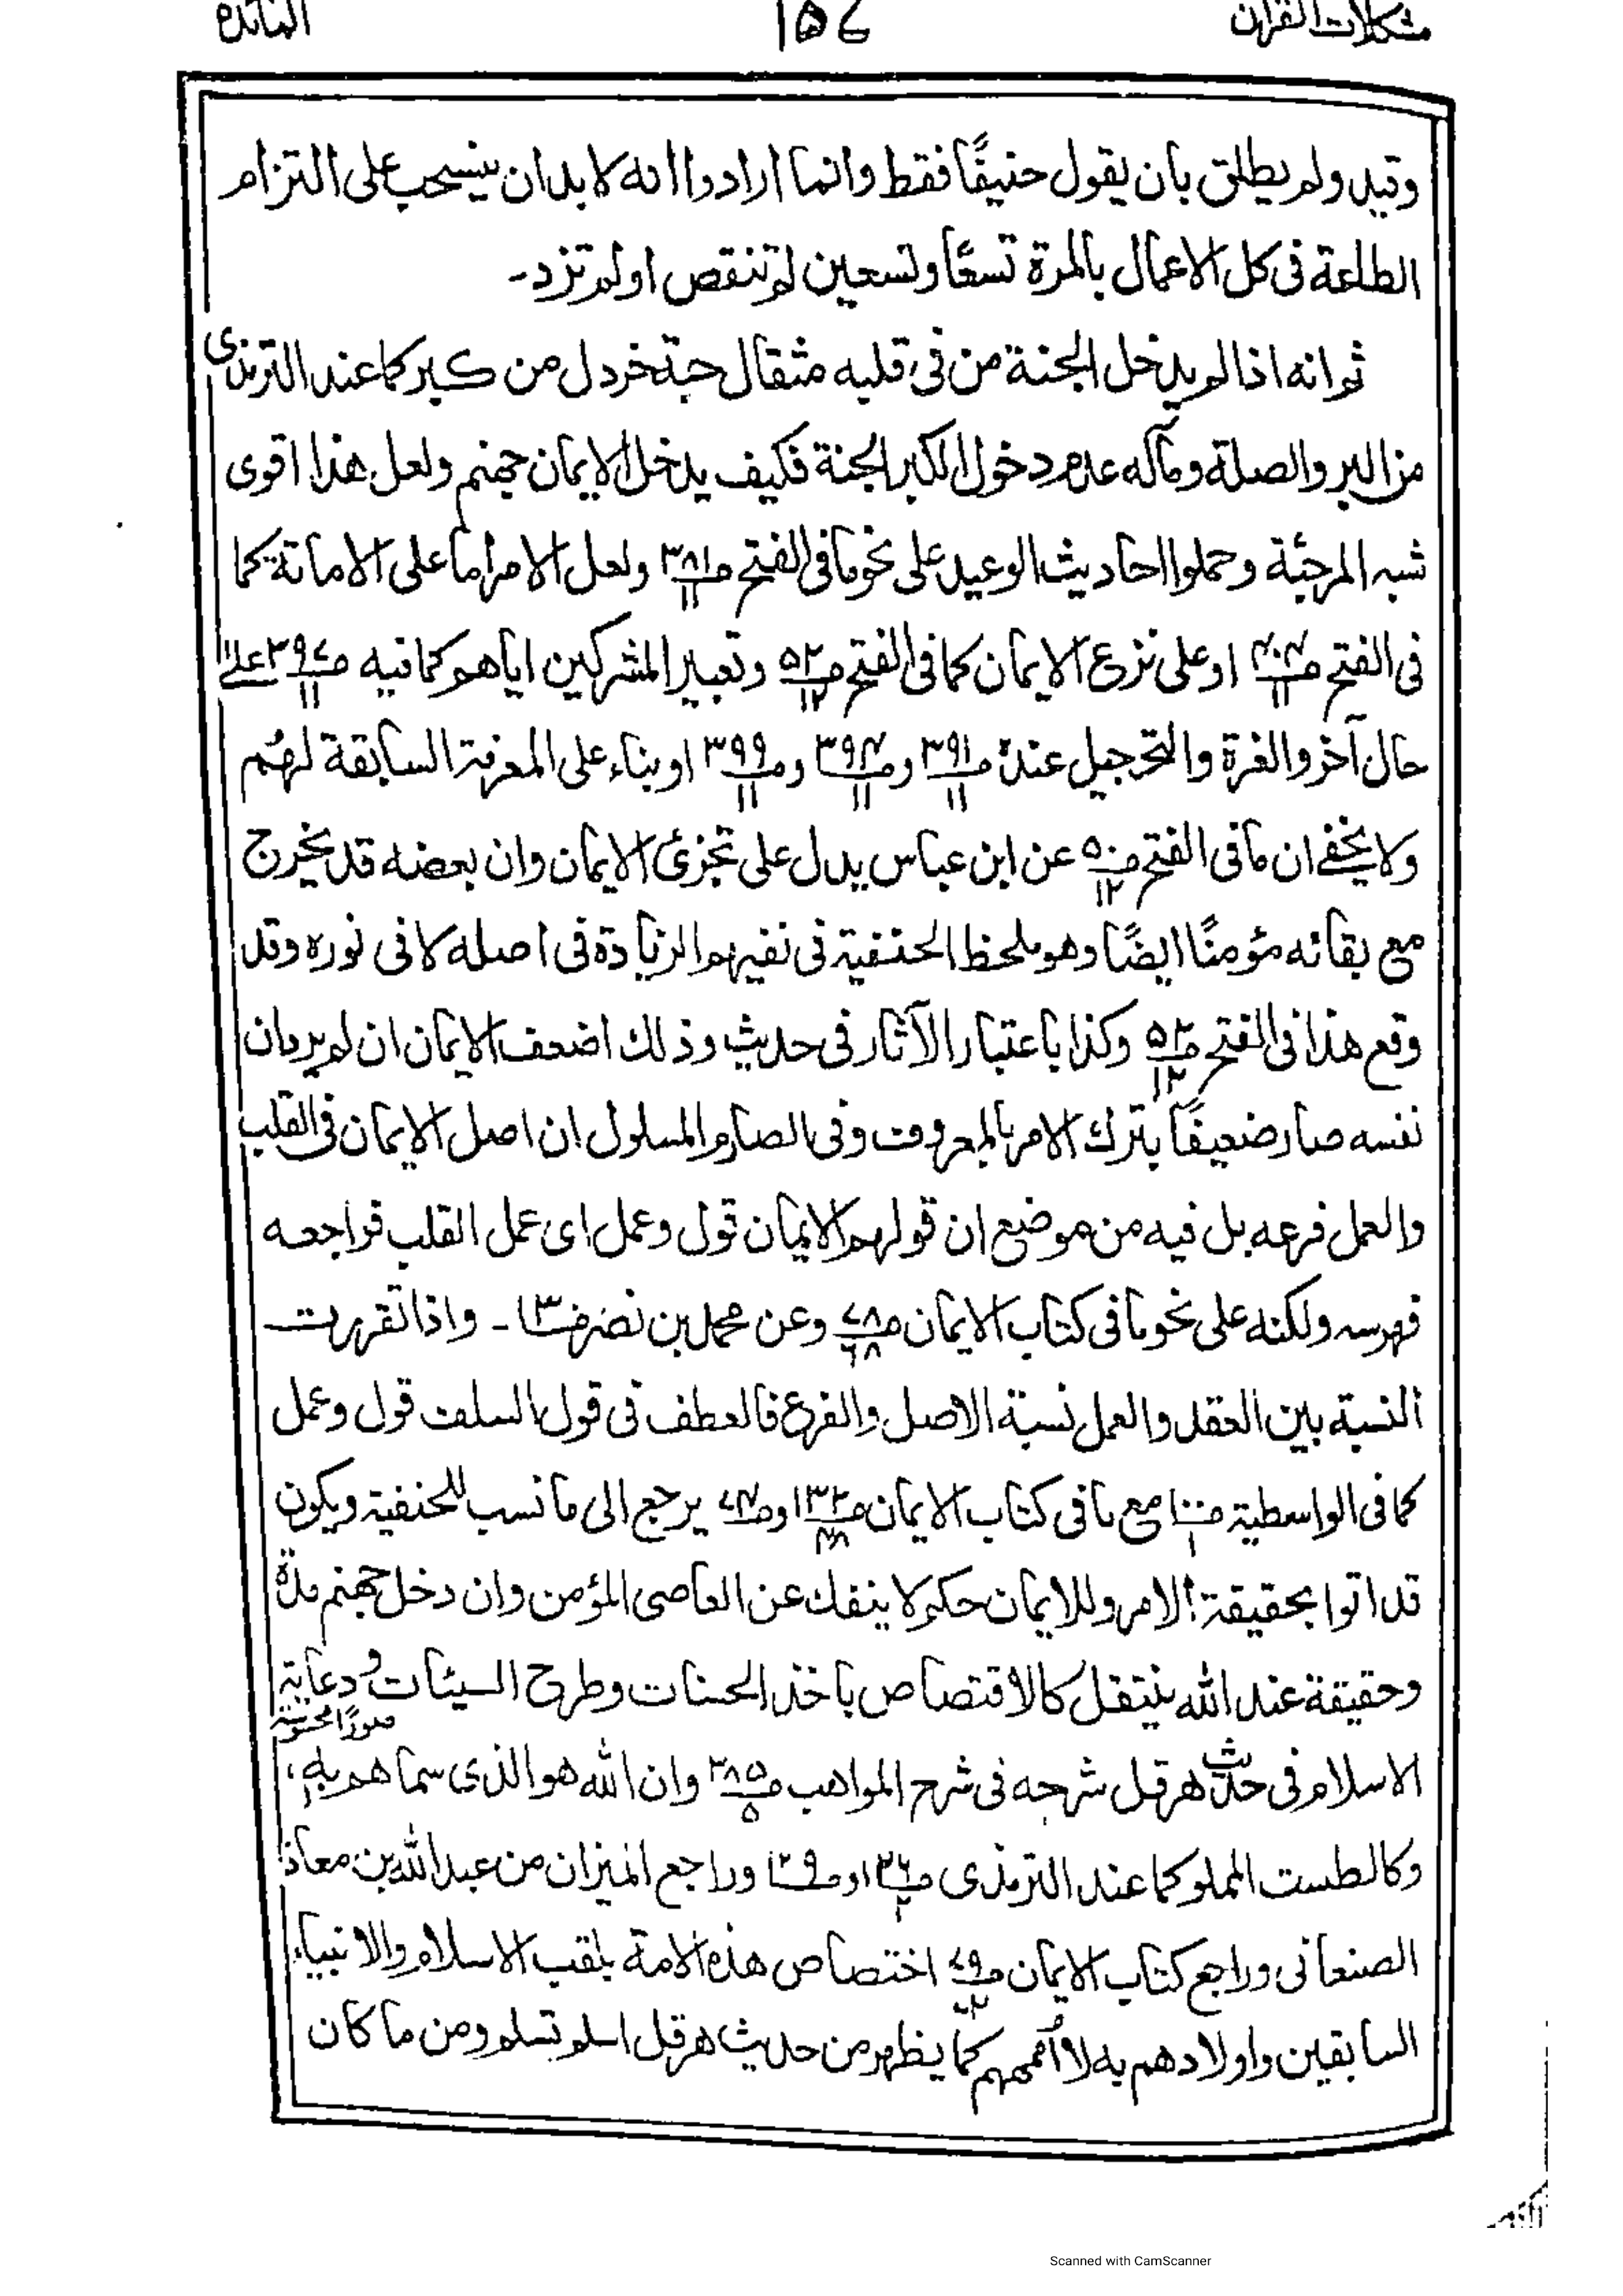 مشكلات القرآن ١٥٤ المائدة
وقيد ولم يطلق بان يقول حنيفًا فقط وانما ارادوا انه لا بد ان ينسحب على التزام
الطاعة فى كل الاعمال بالمرة تسعًا وتسعين لم تنقص او لم تزد۔
ثم انه اذا لم يدخل الجنة من فى قلبه مثقال حبة خردل من كبر كما عند الترمذى
من البر والصلة ومآله عدم دخول الكبر الجنة فكيف يدخل الايمان جهنم ولعل هذا اقوى
شبه المرجئة وحملوا احاديث الوعيد على نحو ما فى الفتح صـ٣٨١/١١ ولعل الامر اما على الامانة كما
فى الفتح صـ٤٠٤/١١ او على نزع الايمان كما فى الفتح صـ٥٢/١٢ وتعبير المشركين اياهم كما فيه صـ٣٩٧/١١ على
حال آخر والغرة والتحجيل عنده صـ٣٩١/١١ وصـ٣٩٤/١١ وصـ٣٩٩/١١ او بناء على المعرفة السابقة لهم
ولا يخفى ان ما فى الفتح صـ٥٠/١٢ عن ابن عباس يدل على تجزئ الايمان وان بعضه قد يخرج
مع بقائه مؤمنًا ايضًا وهو ملحظ الحنفية فى نفيهم الزيادة فى اصله لا فى نوره وقد
وقع هذا فى الفتح صـ٥٢/١٢ وكذا باعتبار الآثار فى حديث وذلك اضعف الايمان ان لم يرد ان
نفسه صار ضعيفًا بترك الامر بالمعروف وفى الصارم المسلول ان اصل الايمان فى القلب
والعمل فرعه بل فيه من موضع ان قولهم الايمان قول وعمل اى عمل القلب فراجعه
فهرسه ولكنه على نحو ما فى كتاب الايمان صـ٧٨/٦٨ وعن محمد بن نصر صـ١٣٠۔ واذا تقررت
النسبة بين العقد والعمل نسبة الاصل والفرع فالعطف فى قول السلف قول وعمل
كما فى الواسطية صـ١٠٠/١ مع ما فى كتاب الايمان صـ١٣٢ وصـ٧٤ يرجع الى ما نسب للحنفية ويكون
قد اتوا بحقيقة الامر وللايمان حكم لا ينفك عن العاصى المؤمن وان دخل جهنم مدة
وحقيقة عند الله ينتقل كالاقتصاص باخذ الحسنات وطرح السيئات ودعاية
الاسلام فى حديث هرقل شرحه فى شرح المواهب صـ٣٨٥/٥ وان الله هو الذى سماهم به،
وكالطست المملو كما عند الترمذى وراجع الميزان من عبد الله بن معاذ
الصنعانى وراجع كتاب الايمان صـ٧٩ اختصاص هذه الامة بلقب الاسلام والانبياء
السابقين واولادهم به لا أممهم كما يظهر من حديث هرقل اسلم تسلم ومن ما كان
Scanned with CamScanner